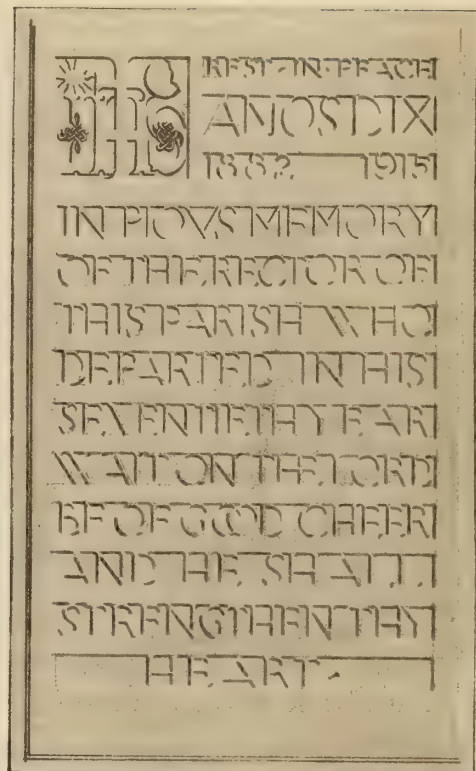 REST IN PEACE
1882 1915
IN PIOVS MEMORY
OF THE RECTOR OF
THIS PARISH WHO
DEPARTED IN HIS
SEVENTIETH YEAR
WAIT ON THE LORD
BE OF GOOD CHEER
AND HE SHALL
STRENGTHEN THY
HEART